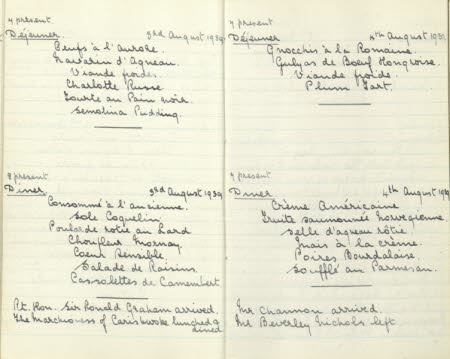 4 present
Déjeuner. 3rd August 1939.
Oeufs à l'Aurore.
Navarin d'Agneau.
Viande froides.
Charlotte Russe.
Tourte au Pain noir.
Semolina Pudding.
8 present
Diner. 3rd August 1939
Consommé à l'ancienne.
Sole Coquelin
Poularde rotie au Lard
Choufleur Mornay
Coeur Sensible
Salade de Raisins.
Cassolettes de Camembert
Rt. Hon. Sir Ronald Graham arrived.
The Marchioness of Carisbrooke lunched &
dined
7 present
Déjeuner 4th August 1939
Gnocchis à la Romaine.
Gulyas de Boeuf Hongroise.
Viande froids.
Plum Tart.
7 present
Diner 4th August 1939
Crème Américaine
Truite saumonnée Norvegienne.
Selle d'agneau rôtie
Mais à la crème.
Poires Bourdalaise
Soufflé au Parmesan.
Mr Channon arrived.
Mr Beverley Nichols left